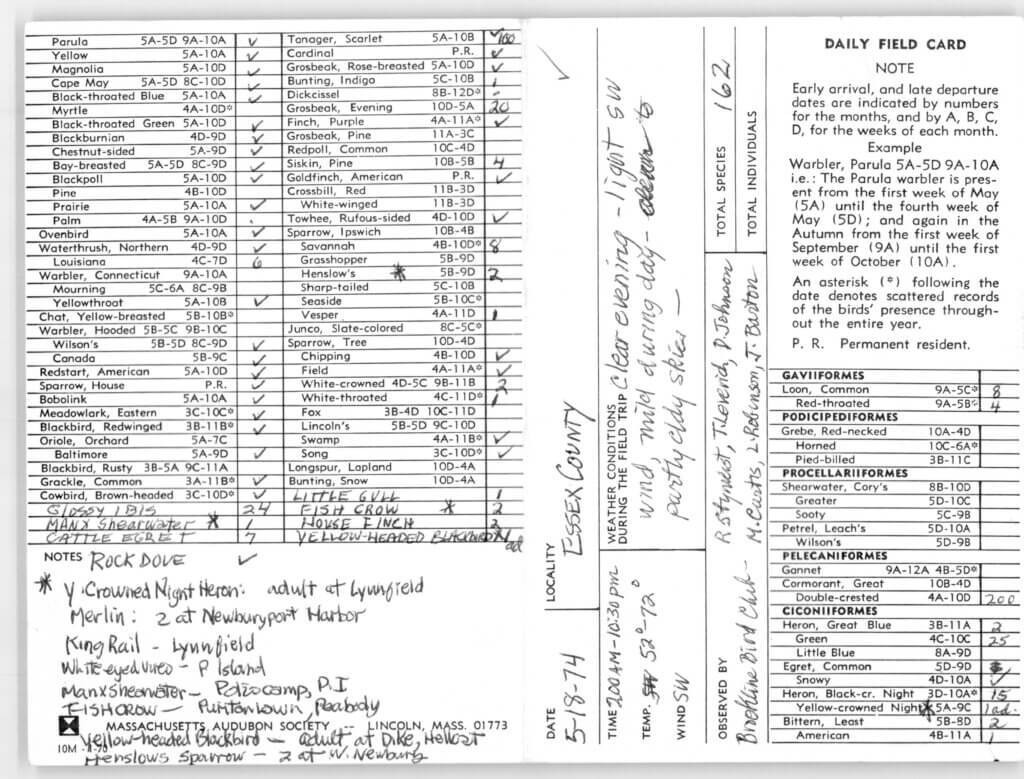 Parula 5A-5D 9A-10A ✓
Yellow 5A-10A ✓
Magnolia 5A-10D ✓
Cape May 5A-5D 8C-10D ✓
Black-throated Blue 5A-10A ✓
Myrtle 4A-10D*
Black-throated Green 5A-10D ✓
Blackburnian 4D-9D ✓
Chestnut-sided 5A-9D ✓
Bay-breasted 5A-5D 8C-9D ✓
Blackpoll 5A-10D ✓
Pine 4B-10D
Prairie 5A-10A ✓
Palm 4A-5B 9A-10D
Ovenbird 5A-10A ✓
Waterthrush, Northern 4D-9D ✓
Louisiana 4C-7D 6
Warbler, Connecticut 9A-10A
Mourning 5C-6A 8C-9B
Yellowthroat 5A-10B ✓
Chat, Yellow-breasted 5B-10B*
Warbler, Hooded 5B-5C 9B-10C
Wilson's 5B-5D 8C-9D ✓
Canada 5B-9C ✓
Redstart, American 5A-10D ✓
Sparrow, House P.R. ✓
Bobolink 5A-10A ✓
Meadowlark, Eastern 3C-10C* ✓
Blackbird, Redwinged 3B-11B* ✓
Oriole, Orchard 5A-7C
Baltimore 5A-9D ✓
Blackbird, Rusty 3B-5A 9C-11A
Grackle, Common 3A-11B* ✓
Cowbird, Brown-headed 3C-10D* ✓
Glossy IBIS 24
MANX Shearwater * 1
CATTLE EGRET 7
Tanager, Scarlet 5A-10B ✓ 100
Cardinal P.R. ✓
Grosbeak, Rose-breasted 5A-10D ✓
Bunting, Indigo 5C-10B 1
Dickcissel 8B-12D*
Grosbeak, Evening 10D-5A 20
Finch, Purple 4A-11A* ✓
Grosbeak, Pine 11A-3C
Redpoll, Common 10C-4D
Siskin, Pine 10B-5B 4
Goldfinch, American P.R. ✓
Crossbill, Red 11B-3D
White-winged 11B-3D
Towhee, Rufous-sided 4D-10D ✓
Sparrow, Ipswich 10B-4B
Savannah 4B-10D* 8
Grasshopper 5B-9D
Henslow's * 5B-9D 2
Sharp-tailed 5C-10B
Seaside 5B-10C*
Vesper 4A-11D 1
Junco, Slate-colored 8C-5C*
Sparrow, Tree 10D-4D
Chipping 4B-10D ✓
Field 4A-11A* ✓
White-crowned 4D-5C 9B-11B 2
White-throated 4C-11D* 1
Fox 3B-4D 10C-11D
Lincoln's 5B-5D 9C-10D
Swamp 4A-11B* ✓
Song 3C-10D* ✓
Longspur, Lapland 10D-4A
Bunting, Snow 10D-4A
LITTLE GULL 1
FISH CROW * 2
HOUSE FINCH 2
YELLOW-HEADED BLACKBIRD *1 ad
NOTES ROCK DOVE ✓
* Y. Crowned Night Heron: adult at Lynnfield
Merlin: 2 at Newburyport Harbor
King Rail - Lynnfield
White-eyed vireo - P Island
Manx Shearwater - Polio camp, P.I
FISH CROW - Puritan town, Peabody
MASSACHUSETTS AUDUBON SOCIETY -- LINCOLN, MASS. 01773
10M
Yellow-headed Blackbird - adult at Dike,
Henslows Sparrow - 2 at W. Newbury
DATE 5-18-74
LOCALITY ESSEX COUNTY ✓
TIME 200AM-10:30pm
TEMP. 52°-72°
WIND SW
WEATHER CONDITIONS
DURING THE FIELD TRIP Clear evening - light SW
wind, mild during day - to
partly cldy skies -
OBSERVED BY R Stymeist, T. Leverid, D. Johnson
Brookline Bird Club - M. Curtis, L. Robinson, J. Barton
TOTAL SPECIES 162
TOTAL INDIVIDUALS
DAILY FIELD CARD
NOTE
Early arrival, and late departure
dates are indicated by numbers
for the months, and by A, B, C,
D, for the weeks of each month.
Example
Warbler, Parula 5A-5D 9A-10A
i.e.: The Parula warbler is pres-
ent from the first week of May
(5A) until the fourth week of
May (5D); and again in the
Autumn from the first week of
September (9A) until the first
week of October (10A).
An asterisk (*) following the
date denotes scattered records
of the birds' presence through-
out the entire year.
P. R. Permanent resident.
GAVIIFORMES
Loon, Common 9A-5C* 8
Red-throated 9A-5B* 4
PODICIPEDIFORMES
Grebe, Red-necked 10A-4D
Horned 10C-6A*
Pied-billed 3B-11C
PROCELLARIIFORMES
Shearwater, Cory's 8B-10D
Greater 5D-10C
Sooty 5C-9B
Petrel, Leach's 5D-10A
Wilson's 5D-9B
PELECANIFORMES
Gannet 9A-12A 4B-5D*
Cormorant, Great 10B-4D
Double-crested 4A-10D 200
CICONIIFORMES
Heron, Great Blue 3B-11A 2
Green 4C-10C 25
Little Blue 8A-9D
Egret, Common 5D-9D
Snowy 4D-10A ✓
Heron, Black-cr. Night 3D-10A* 15
Yellow-crowned Night * 5A-9C 1 ad.
Bittern, Least 5B-8D 2
American 4B-11A 1